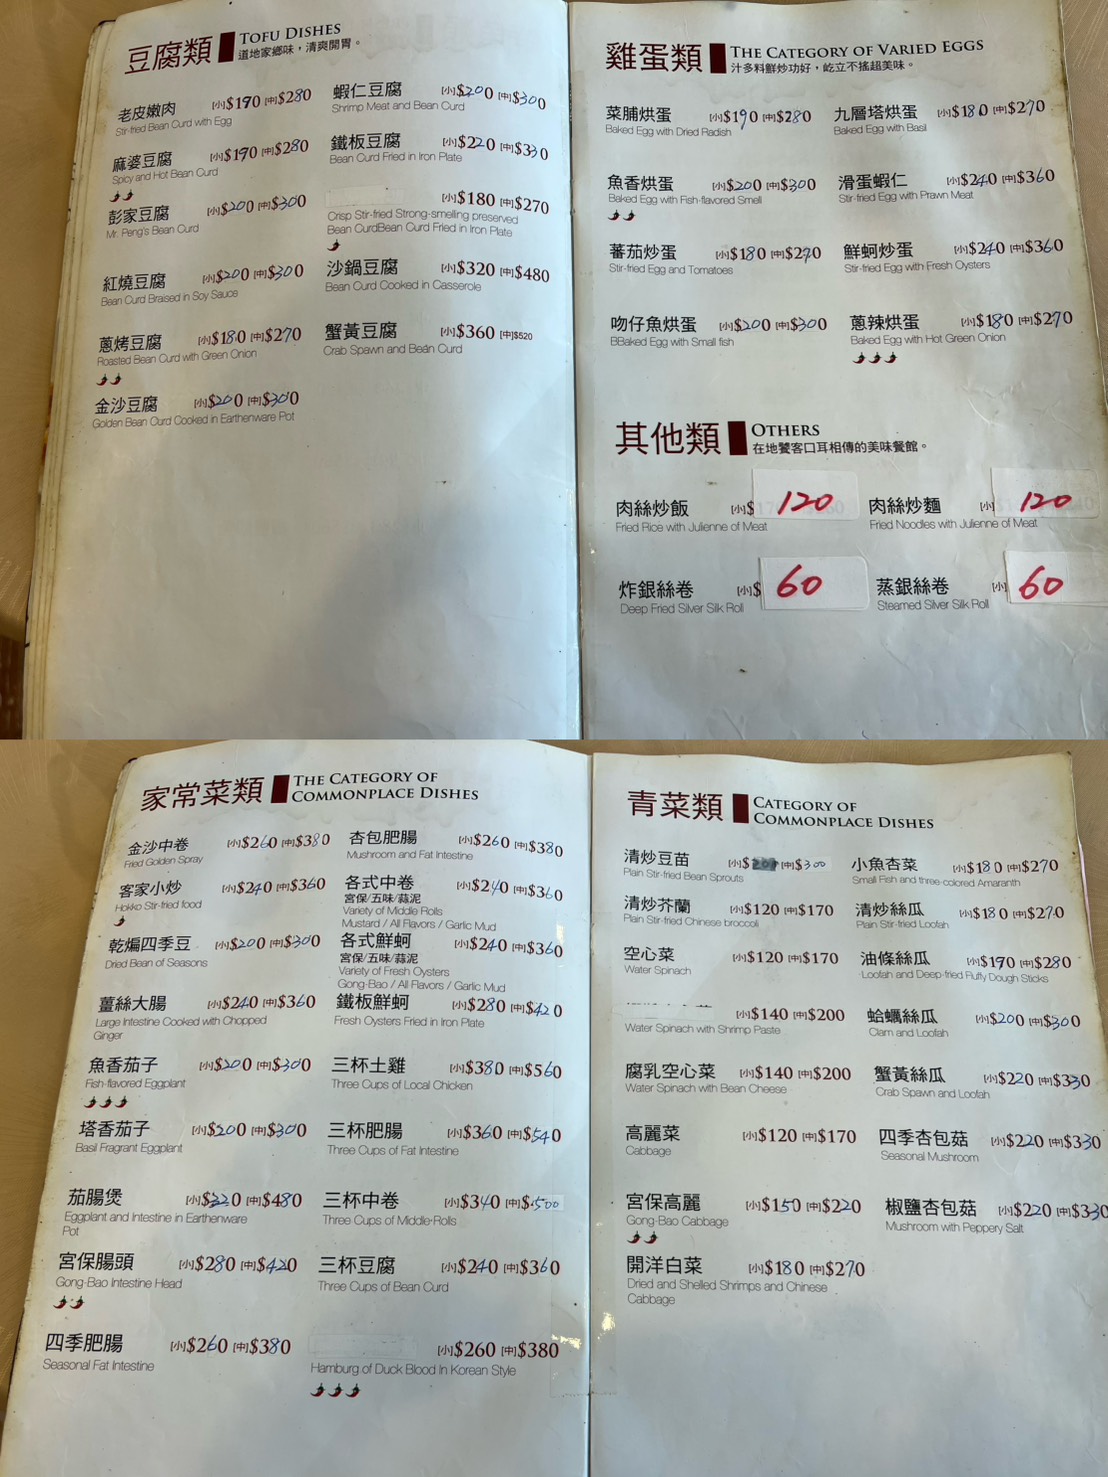 豆腐類 TOFU DISHES
道地家鄉味，清爽開胃。
老皮嫩肉 [小]$170 [中]$280
Stir-fried Bean Curd with Egg
麻婆豆腐 [小]$170 [中]$280
Spicy and Hot Bean Curd
彭家豆腐 [小]$200 [中]$300
Mr. Peng's Bean Curd
紅燒豆腐 [小]$200 [中]$300
Bean Curd Braised in Soy Sauce
蔥烤豆腐 [小]$180 [中]$270
Roasted Bean Curd with Green Onion
金沙豆腐 [小]$200 [中]$300
Golden Bean Curd Cooked in Earthenware Pot
蝦仁豆腐 [小]$200 [中]$300
Shrimp Meat and Bean Curd
鐵板豆腐 [小]$220 [中]$330
Bean Curd Fried in Iron Plate
[小]$180 [中]$270
Crisp Stir-fried Strong-smelling preserved
Bean CurdBean Curd Fried in Iron Plate
沙鍋豆腐 [小]$320 [中]$480
Bean Curd Cooked in Casserole
蟹黃豆腐 [小]$360 [中]$520
Crab Spawn and Bean Curd
雞蛋類 THE CATEGORY OF VARIED EGGS
汁多料鮮炒功好，屹立不搖超美味。
菜脯烘蛋 [小]$190 [中]$280
Baked Egg with Dried Radish
魚香烘蛋 [小]$200 [中]$300
Baked Egg with Fish-flavored Smell
蕃茄炒蛋 [小]$180 [中]$270
Stir-fried Egg and Tomatoes
吻仔魚烘蛋 [小]$200 [中]$300
BBaked Egg with Small fish
九層塔烘蛋 [小]$180 [中]$270
Baked Egg with Basil
滑蛋蝦仁 [小]$240 [中]$360
Stir-fried Egg with Prawn Meat
鮮蚵炒蛋 [小]$240 [中]$360
Stir-fried Egg with Fresh Oysters
蔥辣烘蛋 [小]$180 [中]$270
Baked Egg with Hot Green Onion
其他類 OTHERS
在地饕客口耳相傳的美味餐館。
肉絲炒飯 [小]$ 120
Fried Rice with Julienne of Meat
肉絲炒麵 [小] 120
Fried Noodles with Julienne of Meat
炸銀絲卷 [小]$ 60
Deep Fried Silver Silk Roll
蒸銀絲卷 [小] 60
Steamed Silver Silk Roll
家常菜類 THE CATEGORY OF
COMMONPLACE DISHES
金沙中卷 [小]$260 [中]$380
Fried Golden Spray
客家小炒 [小]$240 [中]$360
Hokko Stir-fried food
乾煸四季豆 [小]$200 [中]$300
Dried Bean of Seasons
薑絲大腸 [小]$240 [中]$360
Large Intestine Cooked with Chopped
Ginger
魚香茄子 [小]$200 [中]$300
Fish-flavored Eggplant
塔香茄子 [小]$200 [中]$300
Basil Fragrant Eggplant
茄腸煲 [小]$320 [中]$480
Eggplant and Intestine in Earthenware
Pot
宮保腸頭 [小]$280 [中]$420
Gong-Bao Intestine Head
四季肥腸 [小]$260 [中]$380
Seasonal Fat Intestine
杏包肥腸 [小]$260 [中]$380
Mushroom and Fat Intestine
各式中卷 [小]$240 [中]$360
宮保/五味/蒜泥
Variety of Middle Rolls
Mustard / All Flavors / Garlic Mud
各式鮮蚵 [小]$240 [中]$360
宮保/五味/蒜泥
Variety of Fresh Oysters
Gong-Bao / All Flavors / Garlic Mud
鐵板鮮蚵 [小]$280 [中]$420
Fresh Oysters Fried in Iron Plate
三杯土雞 [小]$380 [中]$560
Three Cups of Local Chicken
三杯肥腸 [小]$360 [中]$540
Three Cups of Fat Intestine
三杯中卷 [小]$340 [中]$500
Three Cups of Middle-Rolls
三杯豆腐 [小]$240 [中]$360
Three Cups of Bean Curd
[小]$260 [中]$380
Hamburg of Duck Blood In Korean Style
青菜類 CATEGORY OF
COMMONPLACE DISHES
清炒豆苗 [小]$ [中]$300
Plain Stir-fried Bean Sprouts
清炒芥蘭 [小]$120 [中]$170
Plain Stir-fried Chinese broccoli
空心菜 [小]$120 [中]$170
Water Spinach
[小]$140 [中]$200
Water Spinach with Shrimp Paste
腐乳空心菜 [小]$140 [中]$200
Water Spinach with Bean Cheese
高麗菜 [小]$120 [中]$170
Cabbage
宮保高麗 [小]$150 [中]$220
Gong-Bao Cabbage
開洋白菜 [小]$180 [中]$270
Dried and Shelled Shrimps and Chinese
Cabbage
小魚杏菜 [小]$180 [中]$270
Small Fish and three-colored Amaranth
清炒絲瓜 [小]$180 [中]$270
Plain Stir-fried Loofah
油條絲瓜 [小]$190 [中]$280
Loofah and Deep-fried Fluffy Dough Sticks
蛤蠣絲瓜 [小]$200 [中]$300
Clam and Loofah
蟹黃絲瓜 [小]$220 [中]$330
Crab Spawn and Loofah
四季杏包菇 [小]$220 [中]$330
Seasonal Mushroom
椒鹽杏包菇 [小]$220 [中]$330
Mushroom with Peppery Salt